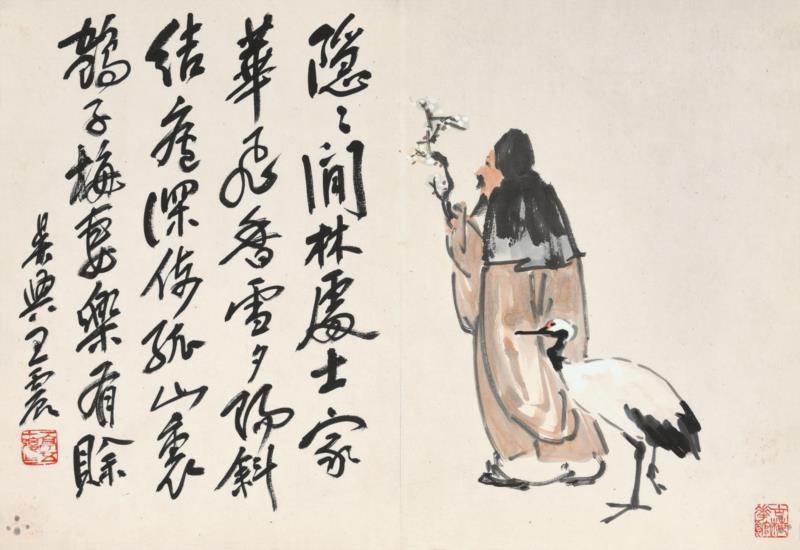 隐〻間林處士家
華飛香雪夕陽斜
結廬深傍孤山裏
鶴子梅妻樂有賖
吳興王震